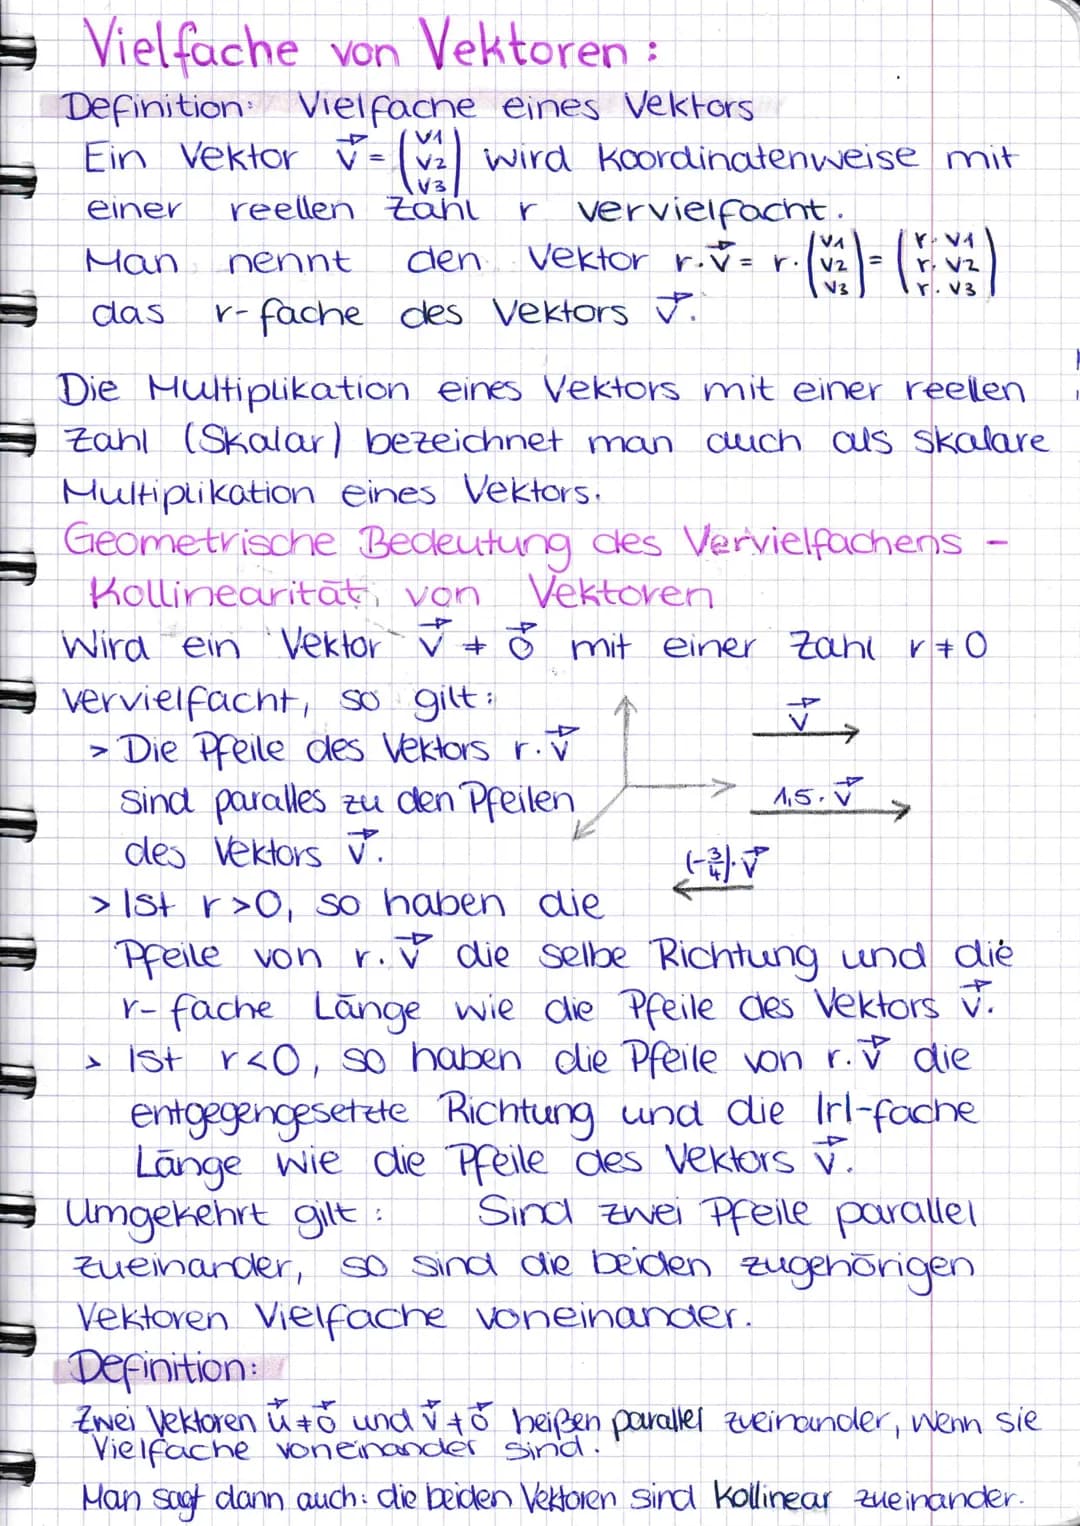 Vielfache von Vektoren:
Definition: Vielfache eines Vektors
Ein Vektor v⃗ = (v1 v2 v3) wird koordinatenweise mit
einer reellen Zahl r vervielfacht.
Man nennt den Vektor r·v⃗ = r·(v1 v2 v3) = (r·v1 r·v2 r·v3)
das r-fache des Vektors v⃗.
Die Multiplikation eines Vektors mit einer reellen
Zahl (Skalar) bezeichnet man auch als skalare
Multiplikation eines Vektors.
Geometrische Bedeutung des Vervielfachens -
Kollinearität von Vektoren
Wird ein Vektor v⃗ ≠ o⃗ mit einer Zahl r ≠ 0
vervielfacht, so gilt:
> Die Pfeile des Vektors r·v⃗
sind paralles zu den Pfeilen
des Vektors v⃗.
v⃗
1,5·v⃗
(-3/4)·v⃗
> Ist r>0, so haben die
Pfeile von r·v⃗ die selbe Richtung und die
r-fache Länge wie die Pfeile des Vektors v⃗.
> Ist r<0, so haben die Pfeile von r·v⃗ die
entgegengesetzte Richtung und die |r|-fache
Länge wie die Pfeile des Vektors v⃗.
Umgekehrt gilt: Sind zwei Pfeile parallel
zueinander, so sind die beiden zugehörigen
Vektoren Vielfache voneinander.
Definition:
Zwei Vektoren u⃗ ≠ o⃗ und v⃗ ≠ o⃗ heißen parallel zueinander, wenn sie
Vielfache voneinander sind.
Man sagt dann auch: die beiden Vektoren sind kollinear zueinander.